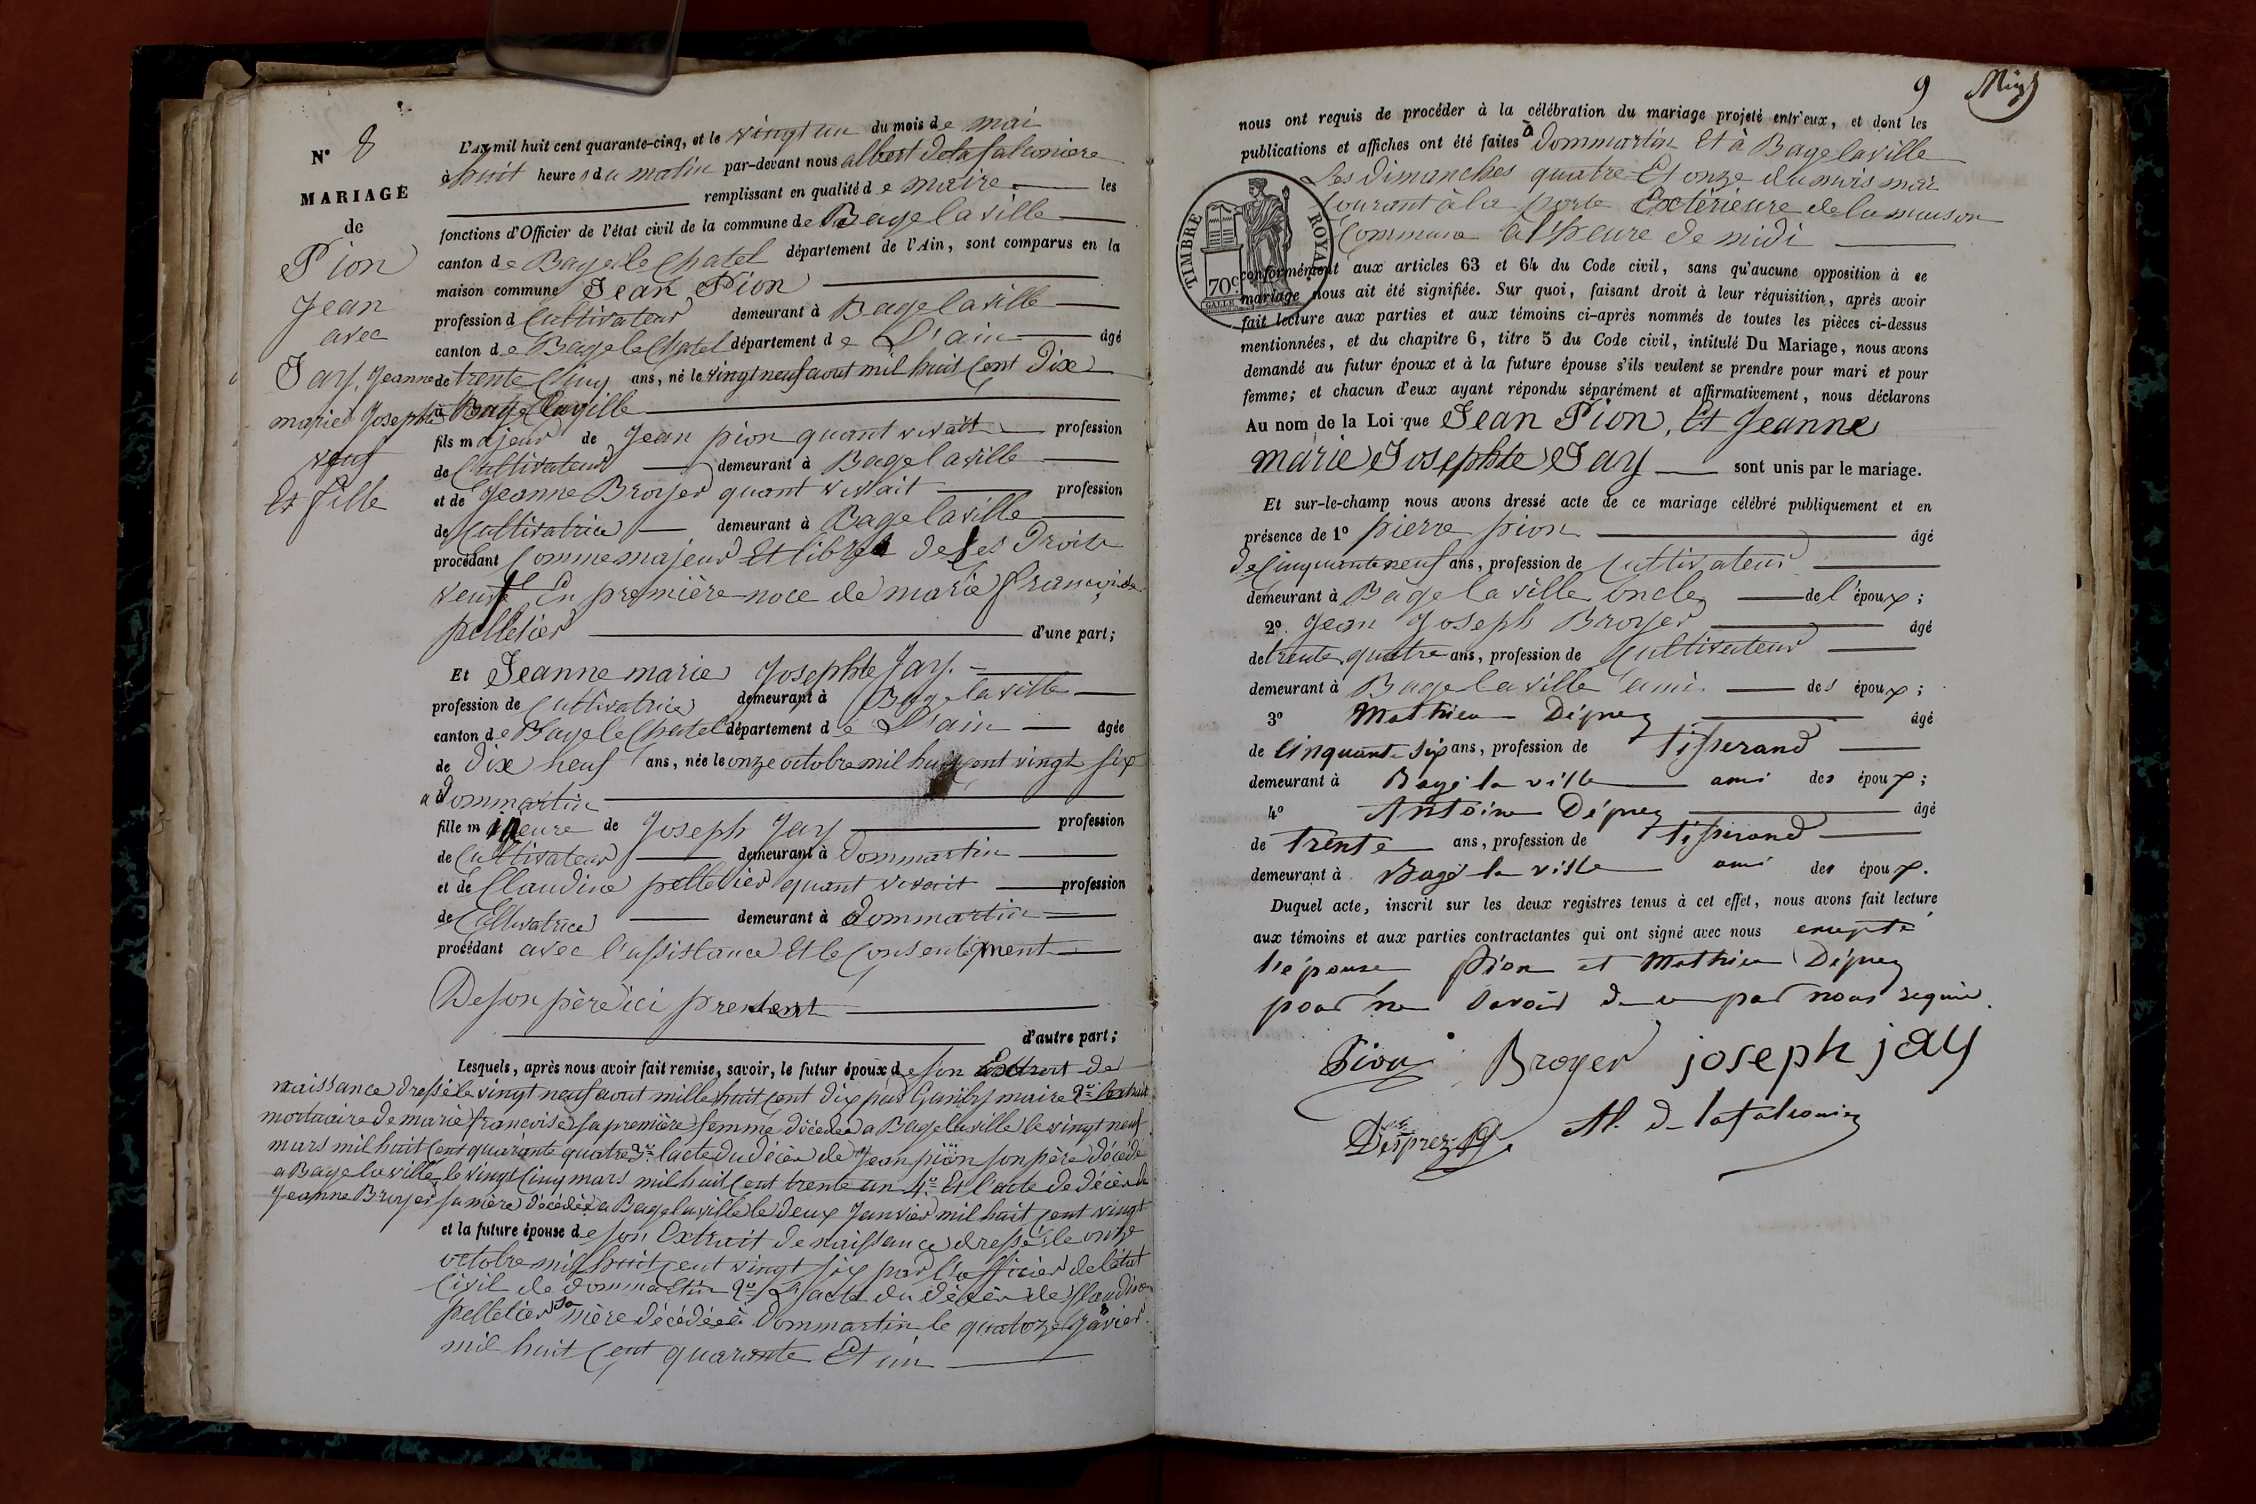 N° 8
MARIAGE
de
Pion
Jean
avec
Jay, Jeanne
marie Josephte
veuf
Et fille
L'AN mil huit cent quarante-cinq, et le vingt un du mois de mai
à huit heures du matin par-devant nous albert delafalconiere
remplissant en qualité de maire les
fonctions d'Officier de l'état civil de la commune de Bagelaville
canton de Bagelechatel département de l'Ain, sont comparus en la
maison commune Jean Pion
profession d Cultivateur demeurant à Bagelaville
canton de Bagelechatel département de L'ain âgé
de trente Cinq ans, né le vingt neuf aout mil huit Cent Dix
a Bagelaville
fils majeur de Jean pion quant vivait profession
de Cultivateur demeurant à Bagelaville
et de Jeanne Broyer quant vivait profession
de Cultivatrice demeurant à Bagelaville
procédant Comme majeur Et libre de ses Droits
veuf En première noce de marie francoise
pelletier d'une part;
Et Jeanne marie Josephte Jay.
profession de Cultivatrice demeurant à Bagelaville
canton de Bagelechatel département de L'ain âgée
de Dix neuf ans, née le onze octobre mil huit cent vingt six
a dommartin
fille mineure de Joseph Jay profession
de Cultivateur demeurant à Dommartin
et de Claudine pelletier quant vivait profession
de Cultivatrice demeurant à dommartin
procédant avec l'assistance Et le Consentement
De son père ici present
d'autre part;
Lesquels, après nous avoir fait remise, savoir, le futur époux de son Extrait de
naissance dressé le vingt neuf aout mille huit Cent dix par maire 2° l'extrait
mortuaire de marie francoise sa première femme décédée a Bagelaville le vingt neuf
mars mil huit Cent quarante quatre 3° l'acte du décès de Jean pion son père décédé
a Bagelaville le vingt Cinq mars mil huit Cent trente un 4° Et l'acte de décès de
Jeanne Broyer sa mère décédée a Bagelaville le deux Janvier mil huit cent vingt
et la future épouse de son Extrait de naissance dressé le onze
octobre mil huit cent vingt six par l'officier de l'état
Civil de dommartin 2° L'acte du décès de Claudine
pelletier sa mère décédée à Dommartin le quatorze Janvier
mil huit Cent quarante Et un
9
nous ont requis de procéder à la célébration du mariage projeté entr'eux, et dont les
publications et affiches ont été faites à Dommartin Et à Bagelaville
Les Dimanches quatre Et onze du mois mai
Courant à la porte Extérieure de la maison
Commune a l'heure de midi
TIMBRE ROYAL
70c
conformément aux articles 63 et 64 du Code civil, sans qu'aucune opposition à ce
mariage nous ait été signifiée. Sur quoi, faisant droit à leur réquisition, après avoir
fait lecture aux parties et aux témoins ci-après nommés de toutes les pièces ci-dessus
mentionnées, et du chapitre 6, titre 5 du Code civil, intitulé Du Mariage, nous avons
demandé au futur époux et à la future épouse s'ils veulent se prendre pour mari et pour
femme; et chacun d'eux ayant répondu séparément et affirmativement, nous déclarons
Au nom de la Loi que Jean Pion, Et Jeanne
marie Josephte Jay sont unis par le mariage.
Et sur-le-champ nous avons dressé acte de ce mariage célébré publiquement et en
présence de 1° pierre pion âgé
de Cinquante neuf ans, profession de Cultivateur
demeurant à Bagelaville oncle de l'époux;
2° Jean Joseph Broyer âgé
de trente quatre ans, profession de Cultivateur
demeurant à Bagelaville ami des époux;
3° Mathieu Déprez âgé
de Cinquante six ans, profession de tisserand
demeurant à Bagé la ville ami des époux;
4° Antoine Déprez âgé
de trente ans, profession de tisserand
demeurant à Bagé la ville ami des époux.
Duquel acte, inscrit sur les deux registres tenus à cet effet, nous avons fait lecture
aux témoins et aux parties contractantes qui ont signé avec nous excepté
l'épouse Pion et Mathieu Déprez
pour ne savoir de ce par nous requis.
Pion Broyer joseph jay
Desprez A. de lafalconiere